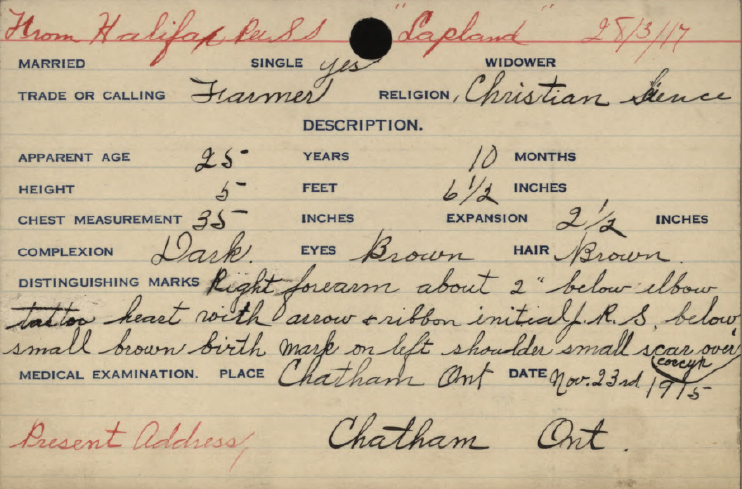 From Halifax Per S S "Lapland" 28/3/17
MARRIED SINGLE yes WIDOWER
TRADE OR CALLING Farmer RELIGION, Christian Sience
DESCRIPTION.
APPARENT AGE 25 YEARS 10 MONTHS
HEIGHT 5 FEET 6 1/2 INCHES
CHEST MEASUREMENT 35 INCHES EXPANSION 2 1/2 INCHES
COMPLEXION Dark. EYES Brown HAIR Brown.
DISTINGUISHING MARKS Right forearm about 2" below elbow
tattoo heart with arrow & ribbon initial J. R. S. below
small brown birth mark on left shoulder small scar over
coccyx
MEDICAL EXAMINATION. PLACE Chatham Ont DATE Nov. 23rd 1915
Present Address, Chatham Ont.